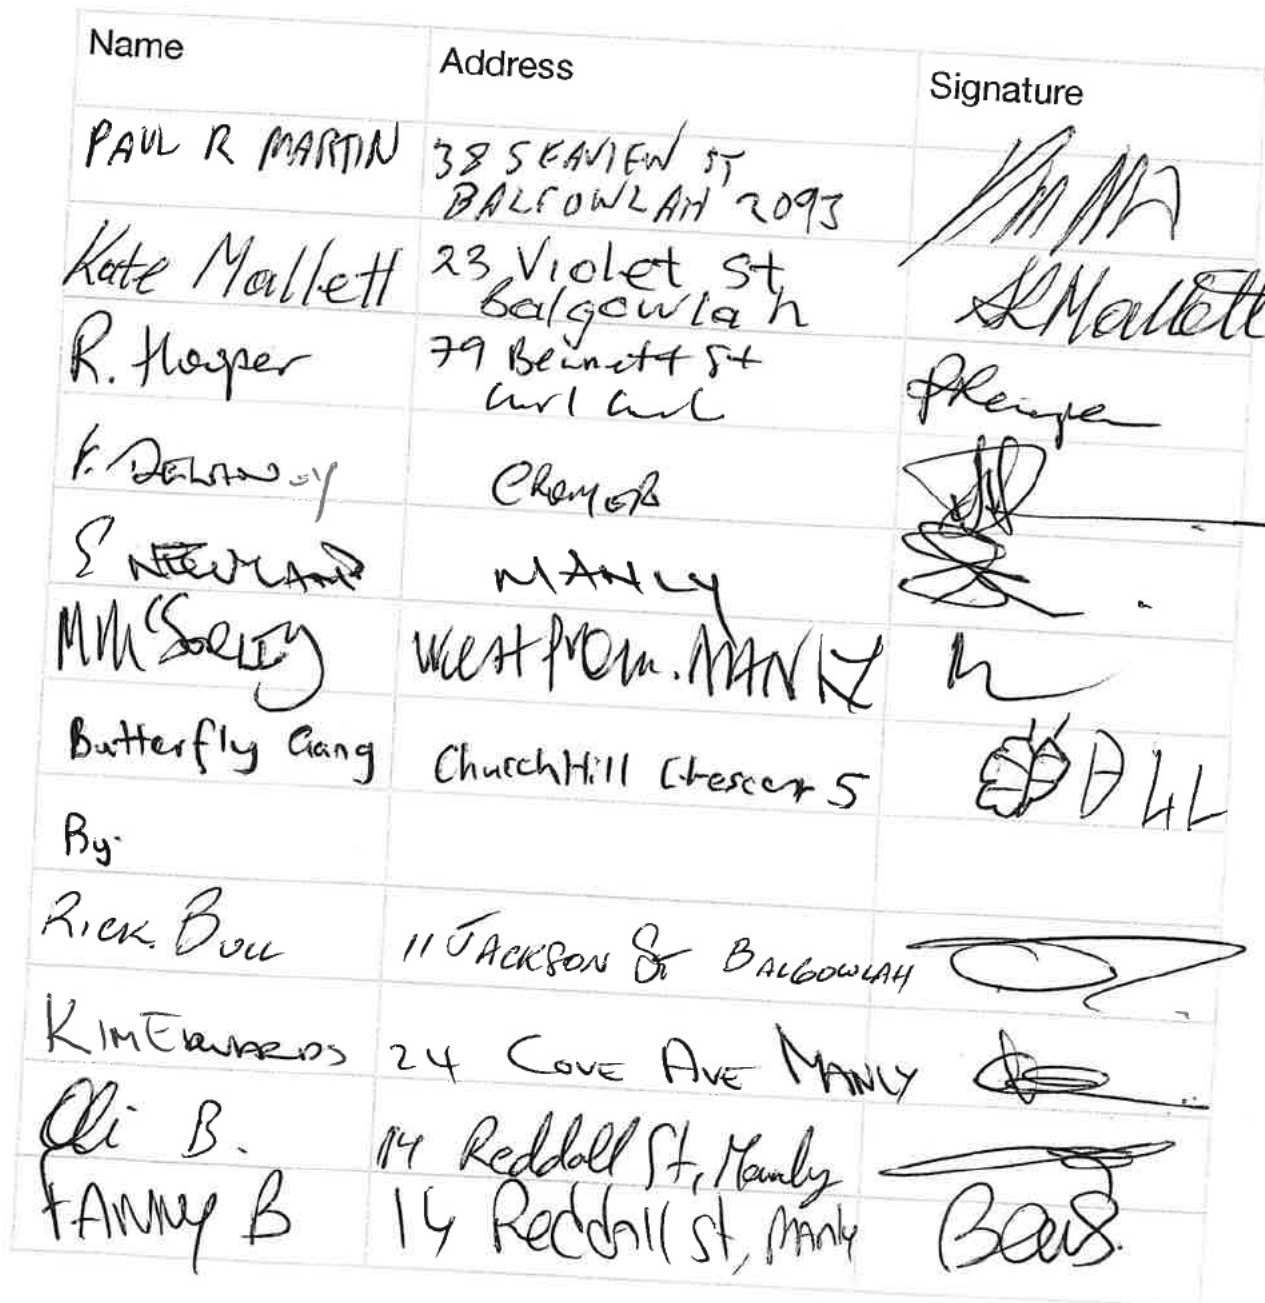 Name Address Signature
PAUL R MARTIN 38 SEAVIEW ST
BALGOWLAH 2093
Kate Mallett 23 Violet St
Balgowlah KMallett
R. Hooper 79 Bennett St
Curl Curl
F. DELANEY CROMER
E NEWLAND MANLY
M McSorley West Prom. MANLY
Butterfly Gang ChurchHill Crescer 5
By.
RICK. BULL 11 JACKSON ST BALGOWLAH
KIM EDWARDS 24 COVE AVE MANLY
Oli B. 14 Reddall St, Manly
FANNY B 14 Reddall St, Manly